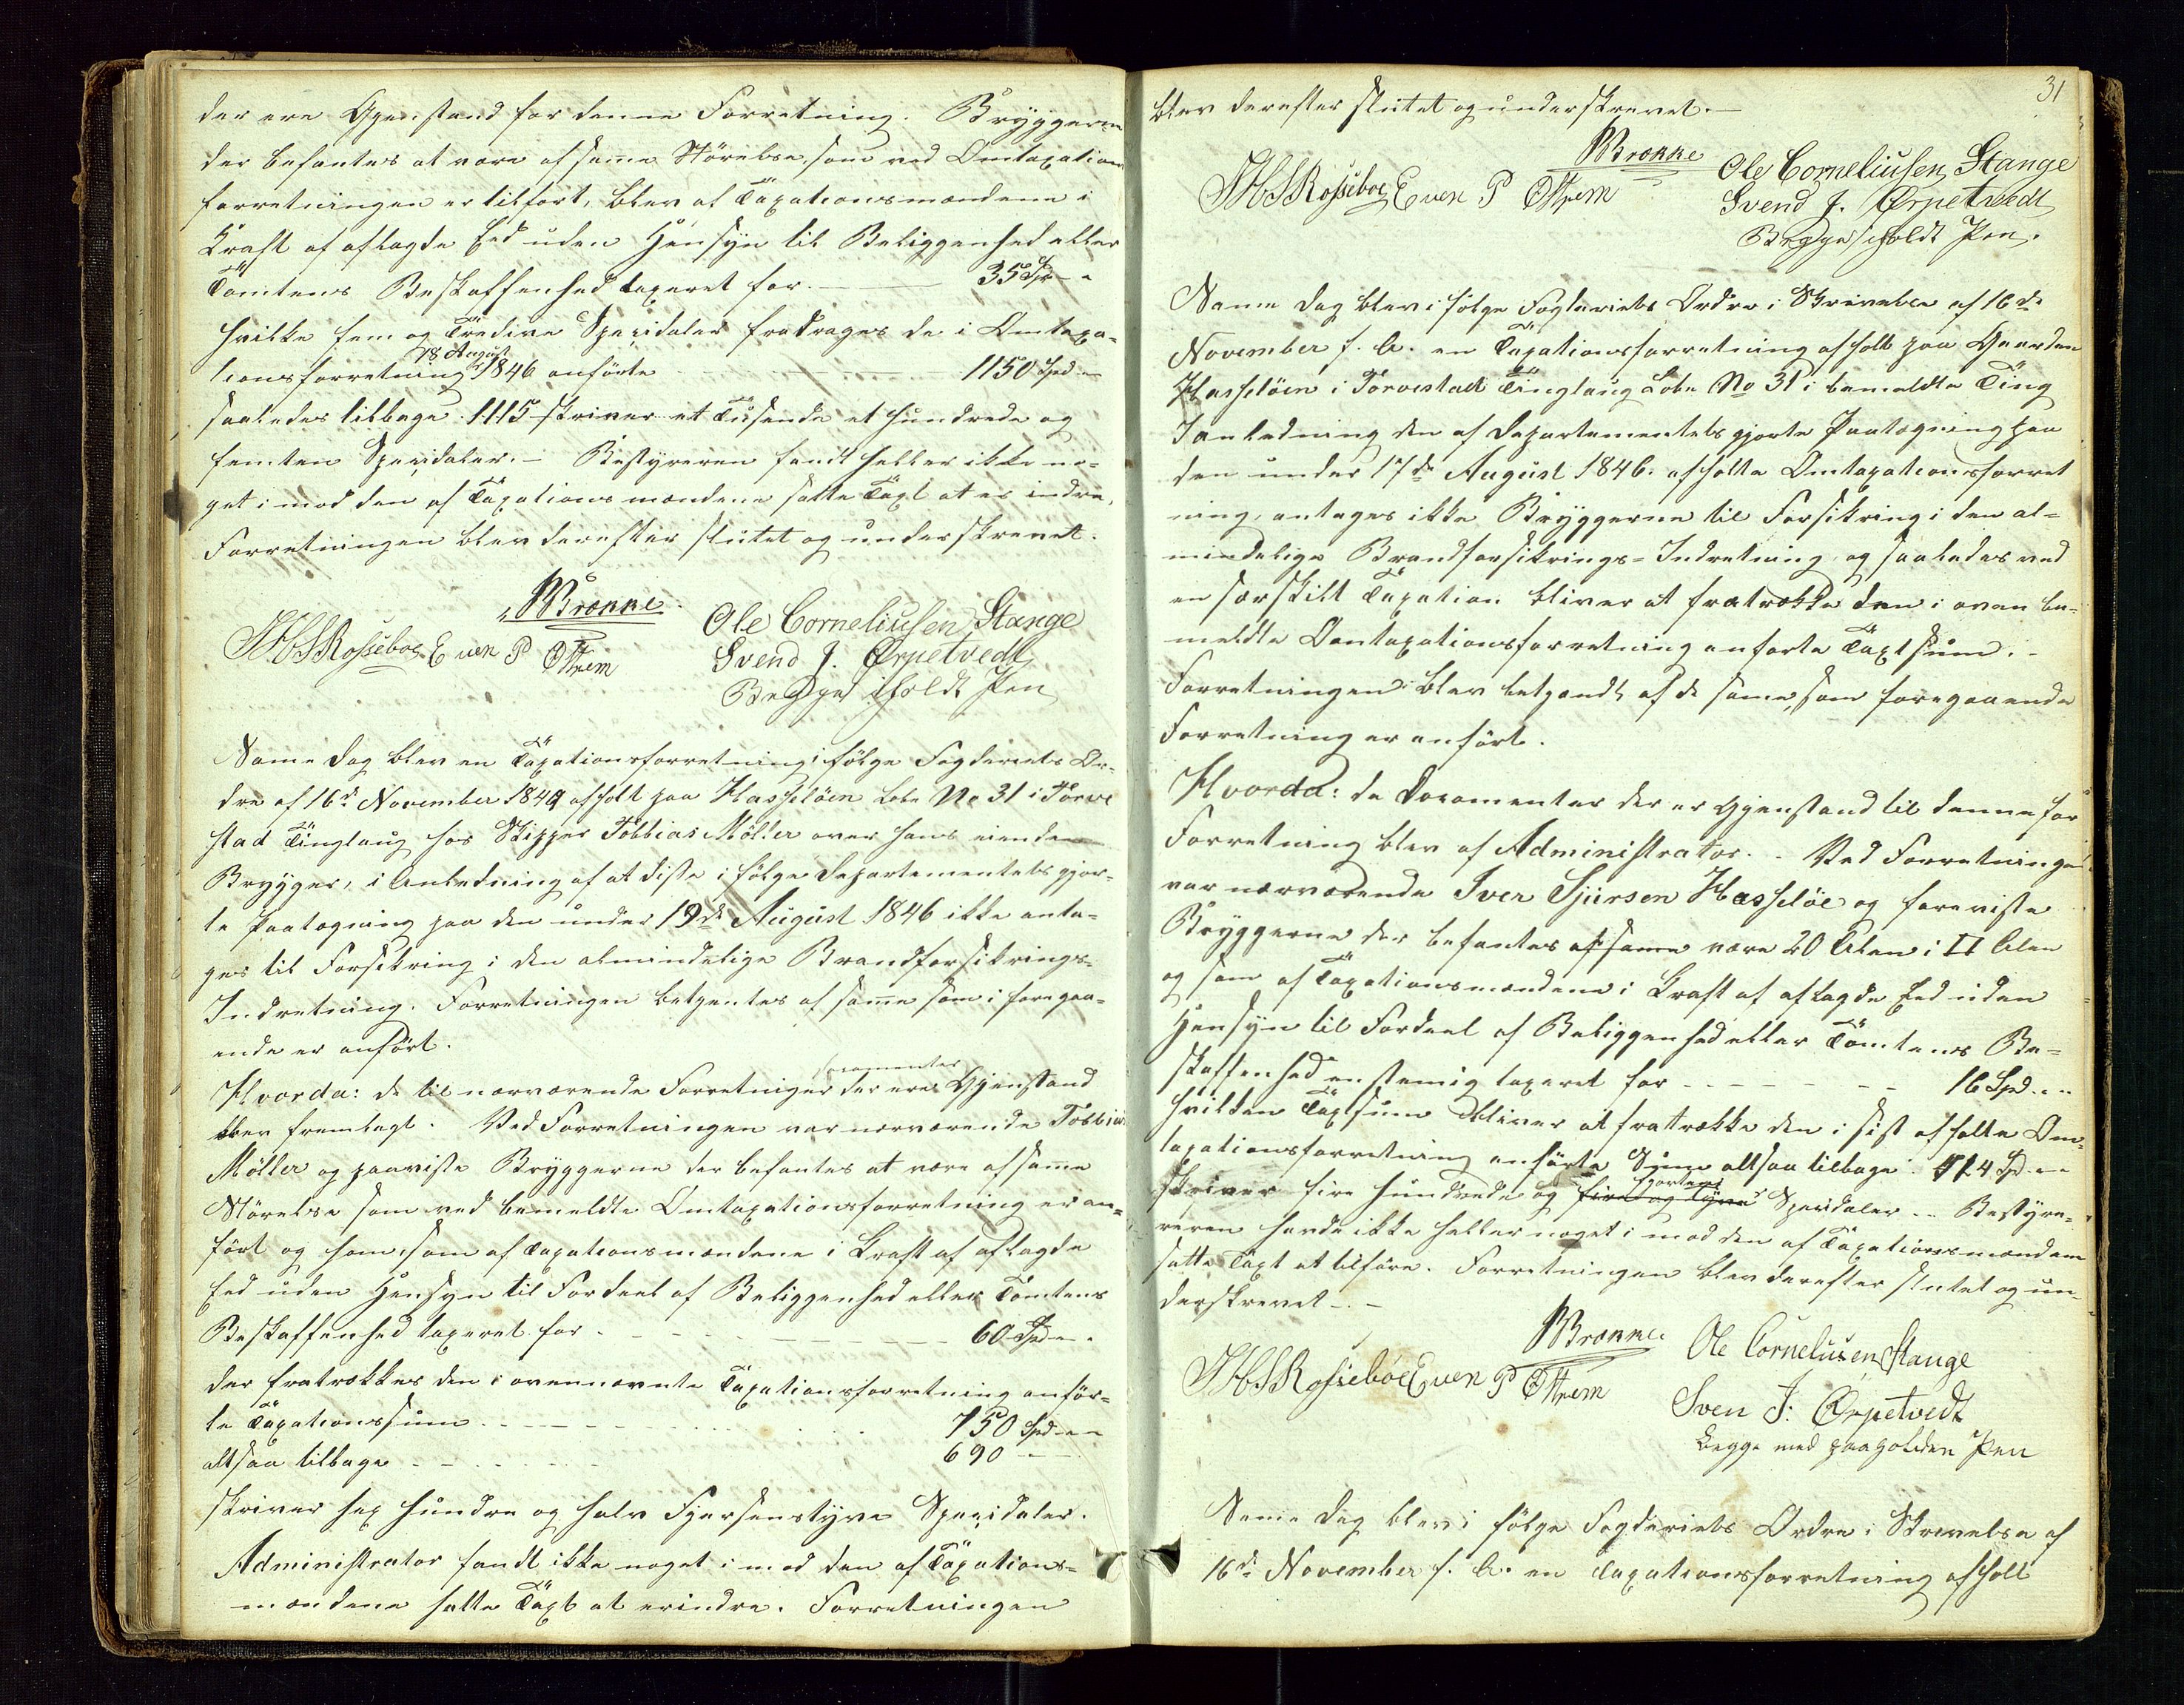 der ere Gjenstand for denne Forretning. Bryggerne
der befantes at være af samme Störelse, som ved Omtaxations
forretningen er tilfört, blev af Taxationsmændene i
Kraft af aflagde Eed uden Hensÿn til Beliggenhed eller
Tomtens Beskaffenhed taxeret for 35 Spd -"
hvilke fem og Tredive Speciedaler fradrages de i Omtaxa-
18 August
tionsforretning 1846 anförte 1150 Spd -
saaledes tilbage 1115 skriver et Tusende et hundrede og
femten Speciedaler. - Bestyreren fandt heller ikke no-
get imod den af Taxationsmændene satte Taxt at erindre,
Forretningen blev derefter sluttet og underskrevet.
Brække
JHSRossebøe Even P Øttrem
Ole Corneliussen Stange
Svend J. Ørpetvedt
Begge iholdt Pen
Same dag blev en Taxationsforretning ifölge Fogderiets Or-
dre af 16de November 1849 afholt paa Hasselöen Löbe No 31 i Torve
stad Tinglaug hos Skipper Tobbias Möller over hans eiendes
Brygger, i Anledning af at disse ifölge Departementets gjor-
te Paategning paa den under 19de August 1846 ikke anta-
ges til Forsikring i den almindelige Brandforsikrings-
Indretning. Forretningen betjentes af samme som i foregaa-
ende er anfört.
Documenter
Hvorda: de til nærværende Forretninger der ere Gjenstand
blev fremlagt. Ved Forretningen var nærværende Tobbias
Möller og paaviste Bryggerne der befantes at være af samme
Störelse som ved bemeldte Omtaxationsforretning er an-
fört og som af Taxationsmændene i Kraft af aflagde
Eed uden Hensyn til Fordeel af Beliggenhed eller Tomtens
Beskaffenhed taxeret for 60 Spd -.
der fratrækkes den i ovennævnte Taxationsforretning anför-
te Taxationssum 750 Spd --
altsaa tilbage 690 --
skriver sex hundre og halv Fjersenstyve Speciedaler.
Administrator fandt ikke noget imod den af Taxations-
mændene satte Taxt at erindre. Forretningen
31
blev derefter sluttet og underskrevet. -
Brække
JHSRossebøe Even P Øttrem
Ole Corneliussen Stange
Svend J. Ørpetvedt
Begge iholdt Pen.
Same dag blev ifölge Fogderiets Ordre i Skrivelse af 16de
November f. A. en Taxationsforretning afholt paa Gaarden
Hasselöen i Torvestad Tinglaug Löbe No 31 i bemeldte Ting
I anledning den af Departementets gjorte Paategning paa
den under 17de August 1846 afholte Omtaxationsforret
ning, antages ikke Bryggerne til Forsikring i den al-
mindelige Brandforsikrings-Indretning og saaledes ved
en særskilt Taxation bliver at fratrække den i oven be-
meldte Omtaxationsforretning anförte Taxtsum. -
Forretningen blev betjendt af de samme, som foregaaende
Forretning er anfört.
Hvorda: de Documenter der er Gjenstand til denne for
Forretning blev af Administrator. - Ved Forretningen
var nærværende Iver Sjursen Hasselöe og foreviste
Bryggerne der befantes af samme være 20 Alen i 11 Alen
og som af Taxationsmændene i Kraft af aflagde Eed uden
Hensÿn til Fordeel af Beliggenhed eller Tomtens Be-
skaffenhed enstemig taxeret for 16 Spd --
hvilken Taxtsum bliver at fratrække den i sist afholte Om-
taxationsforretning anförte Sum altsaa tilbage 414 Spd --
fjorten
skriver fire hundrede og fire og tyve Speciedaler. - Bestyre-
reren havde ikke heller noget imod den af Taxationsmændene
satte Taxt at tilföre. Forretningen blev derefter sluttet og un-
derskrevet. -
Brække.
JHSRossebøe Even P Øttrem
Ole Corneliusen Stange
Sven J: Ørpetvedt
begge med paaholden Pen
Same dag blev i fölge Fogderiets Ordre i Skrivelse af
16de November f. A. en Taxationsforretning afholt